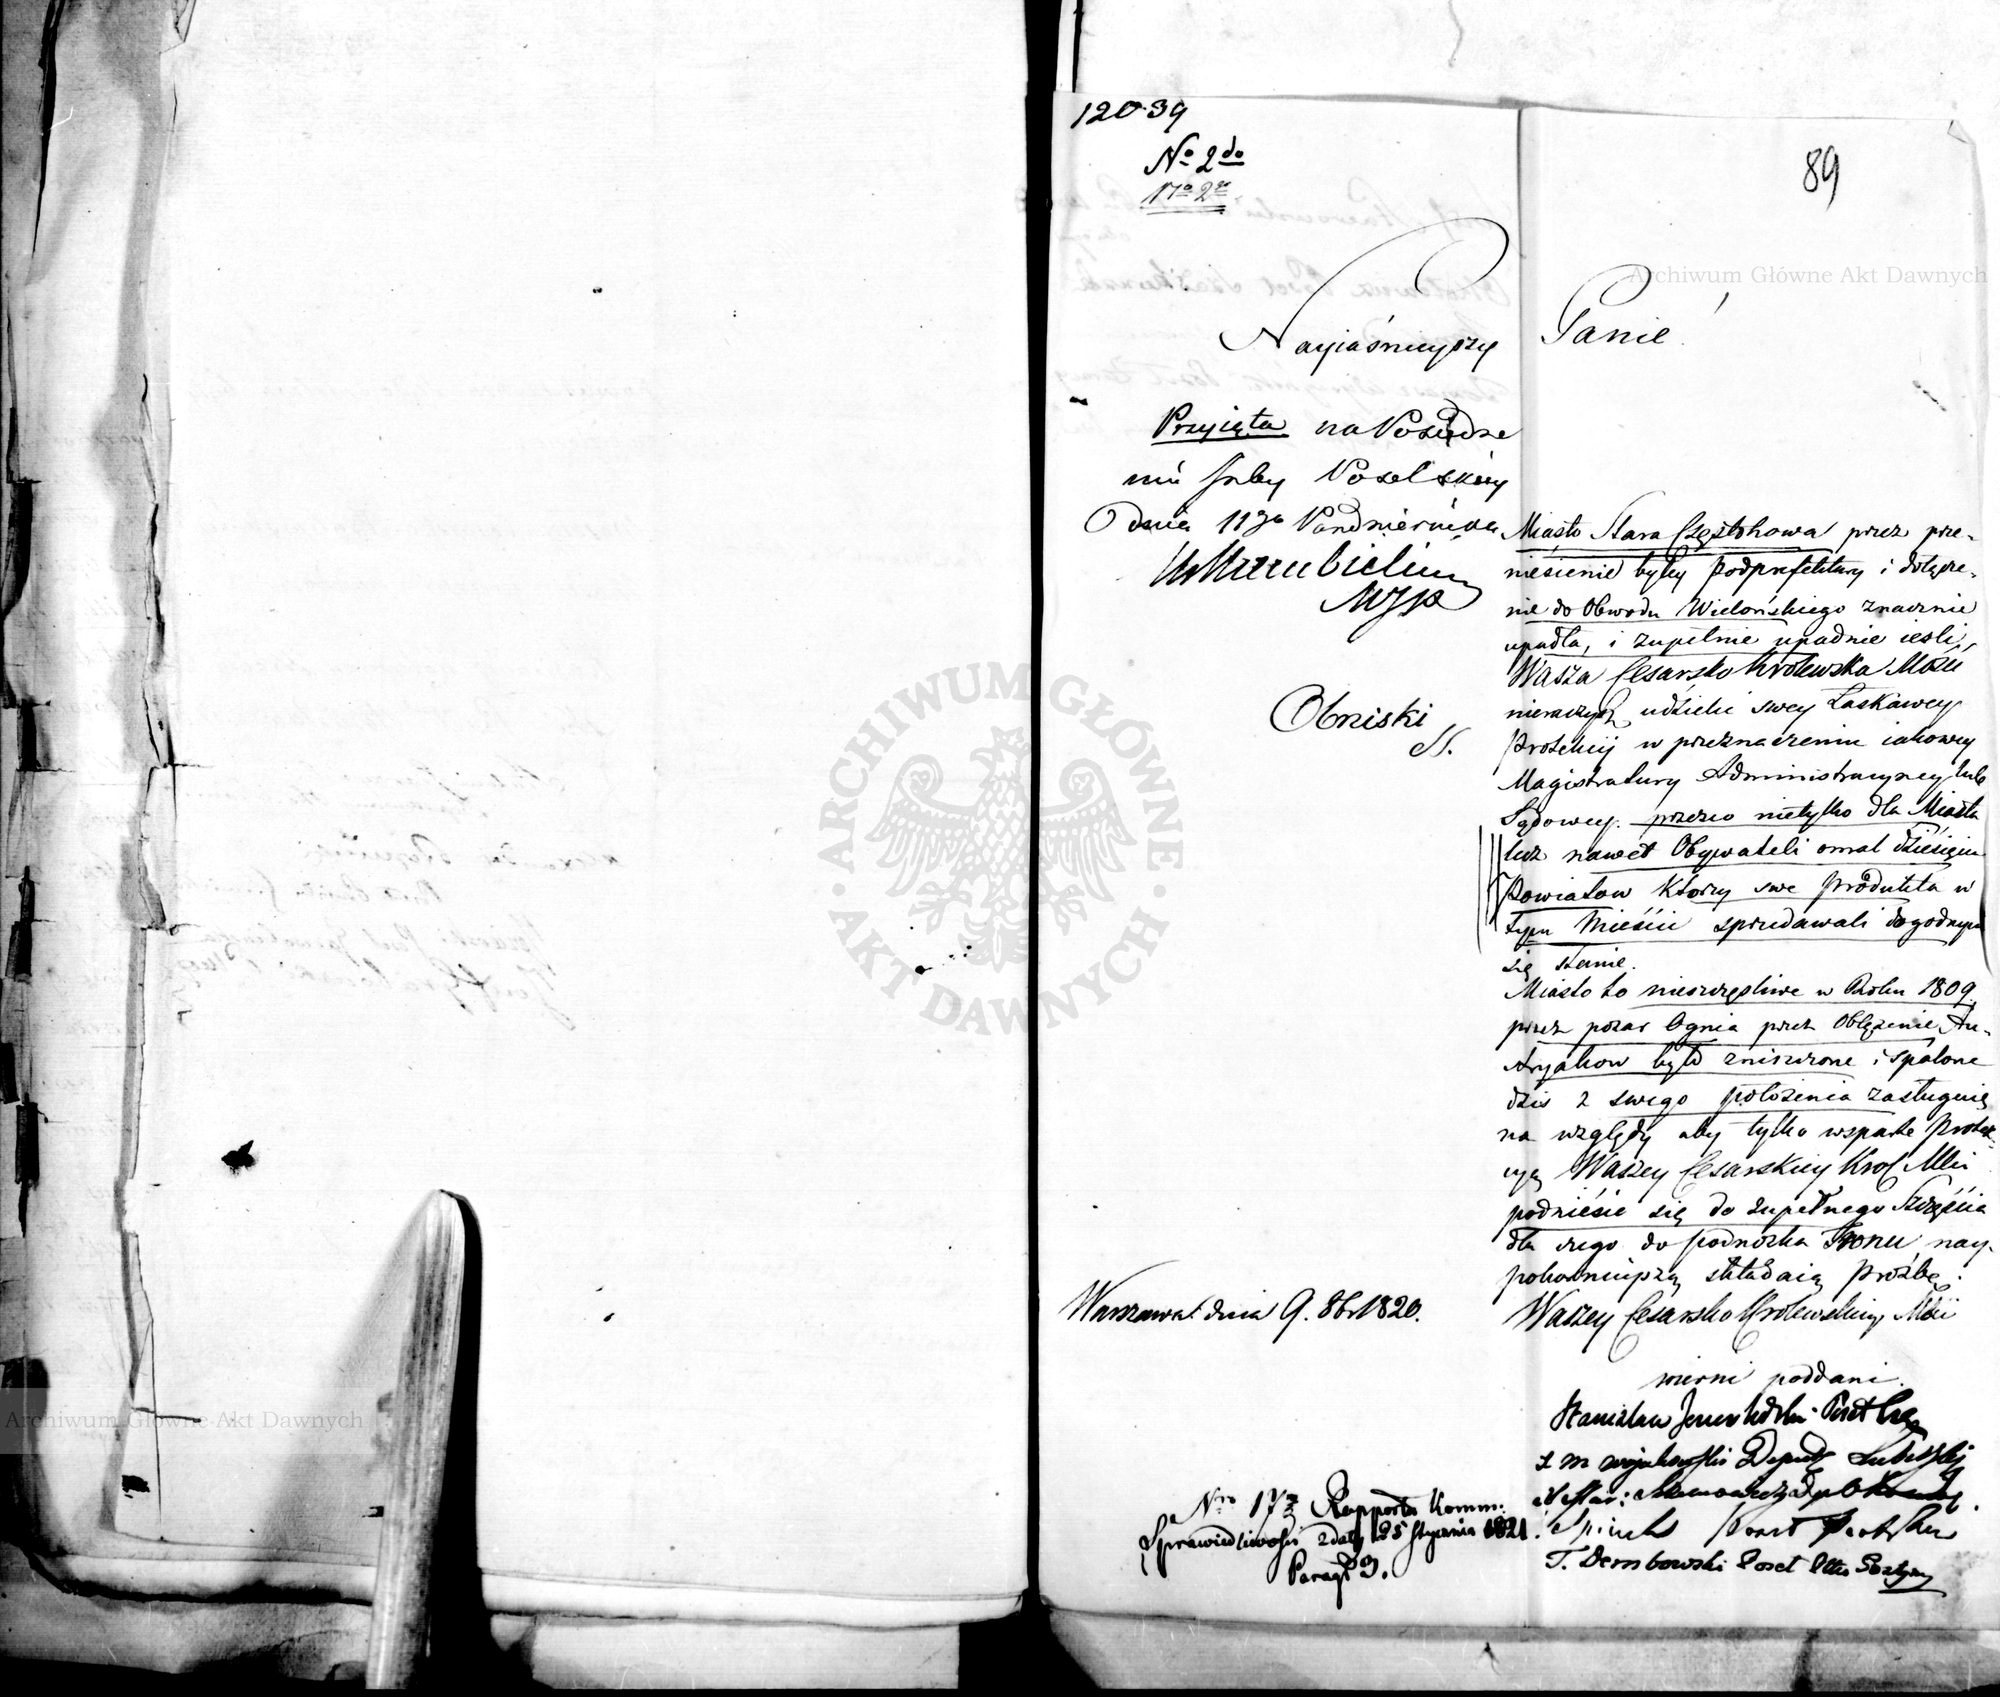 120.39
89
No 2do
No 2go
Nayiaśnieyszy Panie!
Przyięta na Posiedze
niu Izby Poselskiey
Dnia 11go Pazdziernika
Obniski
Miasto Stara Częstohowa przez prze-
niesienie byłey podprefektury i dołącze-
nie do Obwodu Wieluńskiego znacznie
upadła, i zupełnie upadnie iesli
Wasza Cesarsko Krolewska Mość
nieraczysz udzielić swey Łaskawey
Protekcij w przeznaczeniu iakowey
Magistratury Administracyney lub
Sądowey. przezco nietylko dla Miasta
lecz nawet Obywateli omal dziesięciu
Powiatow Ktorzy swe produkta w
tym Mieście sprzedawali dogodnym
się stanie.
Miasto to nieszczęśliwe w Roku 1809
przez pożar Ognia przez Oblężenie Au-
stryakow było zniszczone i spalone
dziś z swego położenia zasługuie
na względy aby tylko wsparte protek-
cyą Waszey Cesarskiey Krol Mści
podnieśie się do zupełnego Szczęścia
dla czego do podnożka Tronu nay-
pokornieyszą składaią proźbę.
Waszey Cesarsko Krolewskiey Mści
wierni poddani.
Warszawa dnia 9. 8br 1820.
Stanisław Poseł
Deputy
Poseł
T. Dembowski Poseł
Nro 17 Rapportu Komm:
Sprawiedliwości z daty 25 Stycznia 1821.
Paragr 3.
ARCHIWUM GŁÓWNE AKT DAWNYCH
Archiwum Główne Akt Dawnych
Archiwum Główne Akt Dawnych